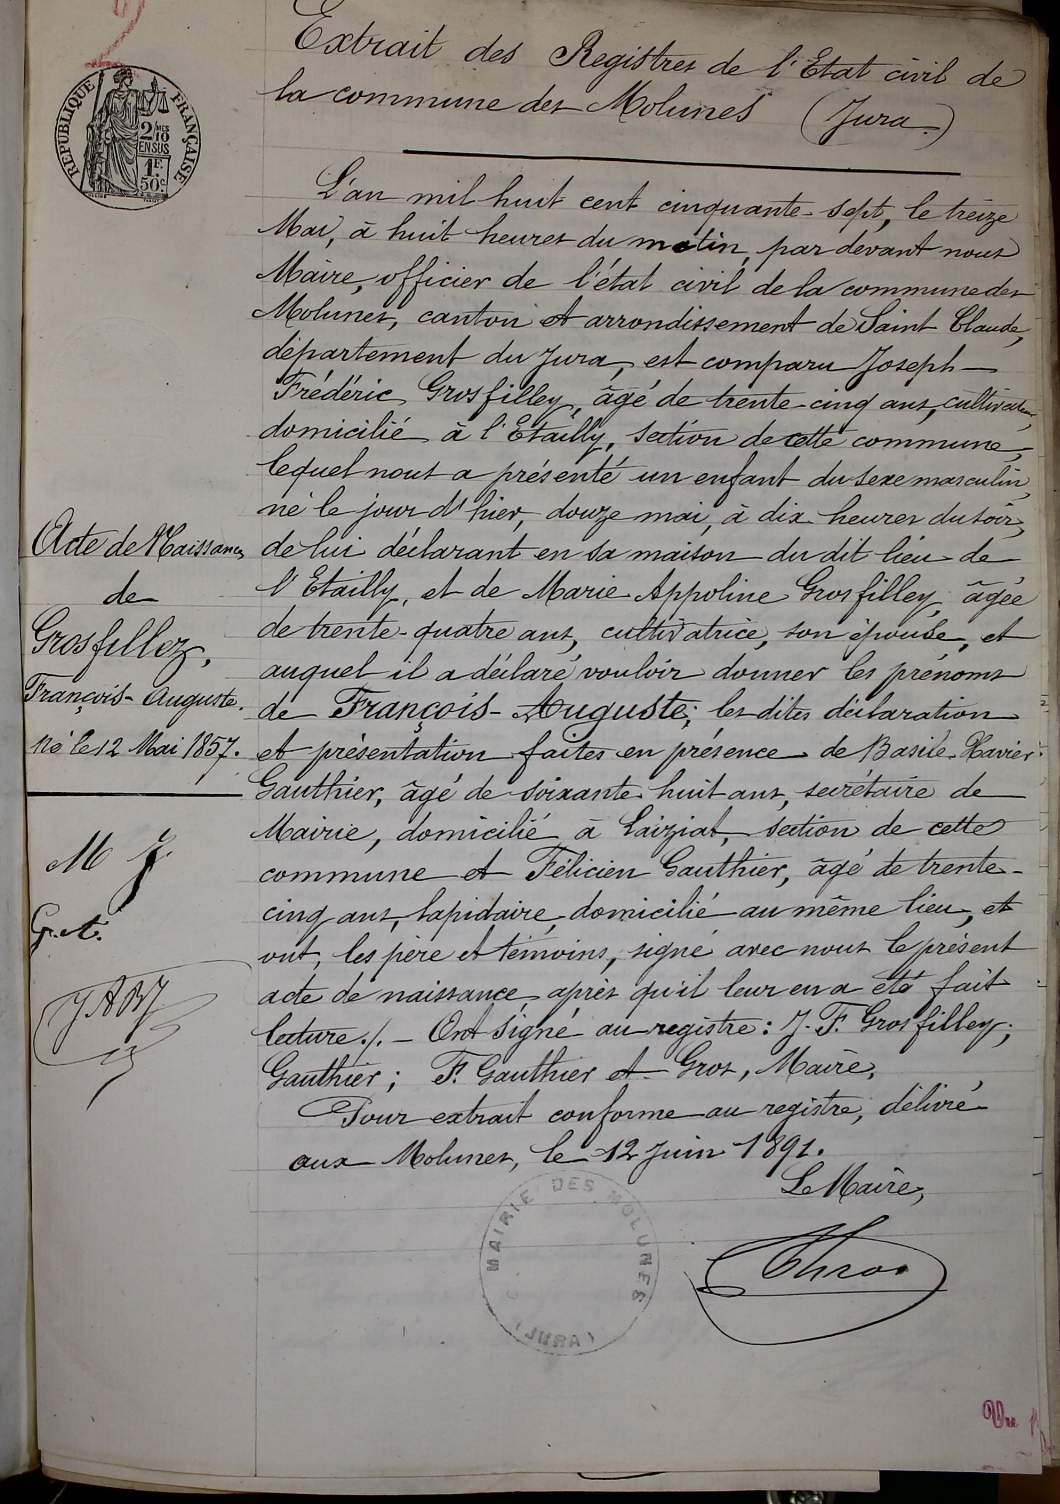 Extrait des Registres de l'Etat civil de
la commune des Molunes (Jura)
RÉPUBLIQUE FRANÇAISE
2/10
EN SUS
1F.
50c.
L'an mil huit cent cinquante-sept, le treize
Mai, à huit heures du matin, par devant nous
Maire, officier de l'état civil de la commune des
Molunes, canton et arrondissement de Saint Claude,
département du Jura, est comparu Joseph-
Frédéric Grosfilley, âgé de trente-cinq ans, cultivateur,
domicilié à l'Etailly, section de cette commune,
lequel nous a présenté un enfant du sexe masculin,
né le jour d'hier, douze mai, à dix heures du soir,
de lui déclarant en sa maison du dit lieu de
l'Etailly, et de Marie-Appoline Grosfilley, âgée
de trente-quatre ans, cultivatrice, son épouse, et
auquel il a déclaré vouloir donner les prénoms
de François-Auguste; les dites déclaration
et présentation faites en présence de Basile-Xavier
Gauthier, âgé de soixante-huit ans, secrétaire de
Mairie, domicilié à Laiziat, section de cette
commune et Félicien Gauthier, âgé de trente-
cinq ans, lapidaire, domicilié au même lieu, et
ont, les père et témoins, signé avec nous le présent
acte de naissance, après qu'il leur en a été fait
lecture ./. - Ont signé au registre: J. F. Grosfilley;
Gauthier; F. Gauthier et Gros, Maire.
Pour extrait conforme au registre, délivré
aux Molunes, le 12 Juin 1891.
Le Maire,
Acte de Naissance
de
Grosfillez,
François-Auguste.
Né le 12 Mai 1857.
MAIRIE DES MOLUNES
(JURA)